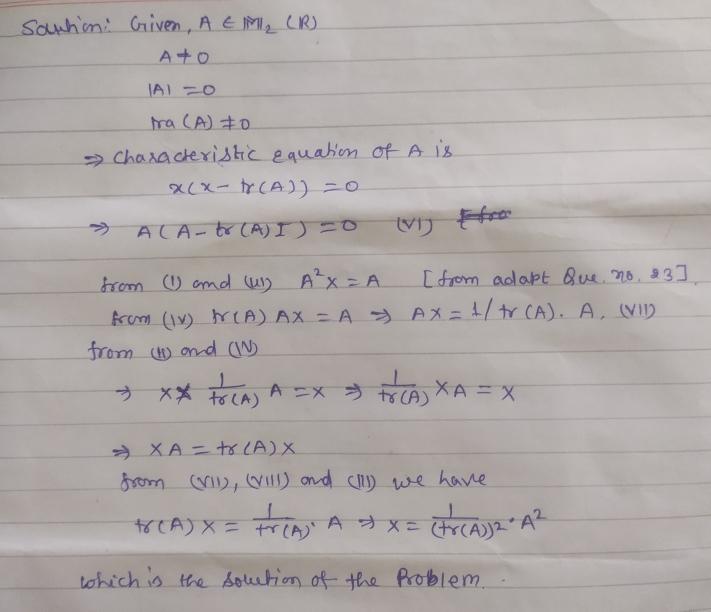 Solution: Given, A ∈ M₂ (R)
A ≠ 0
|A| = 0
tra (A) ≠ 0
⇒ Characteristic equation of A is
x(x - tr(A)) = 0
⇒ A(A - tr(A) I) = 0 (VI)
from (I) and (III) A²X = A [from adapt Que. no. 23]
from (IV) tr(A) AX = A ⇒ AX = 1/tr(A). A, (VII)
from (II) and (IV)
⇒ X 1/tr(A) A = X ⇒ 1/tr(A) XA = X
⇒ XA = tr(A) X
from (VII), (VIII) and (III) we have
tr(A) X = 1/tr(A). A ⇒ X = 1/(tr(A))2 . A²
which is the solution of the Problem.